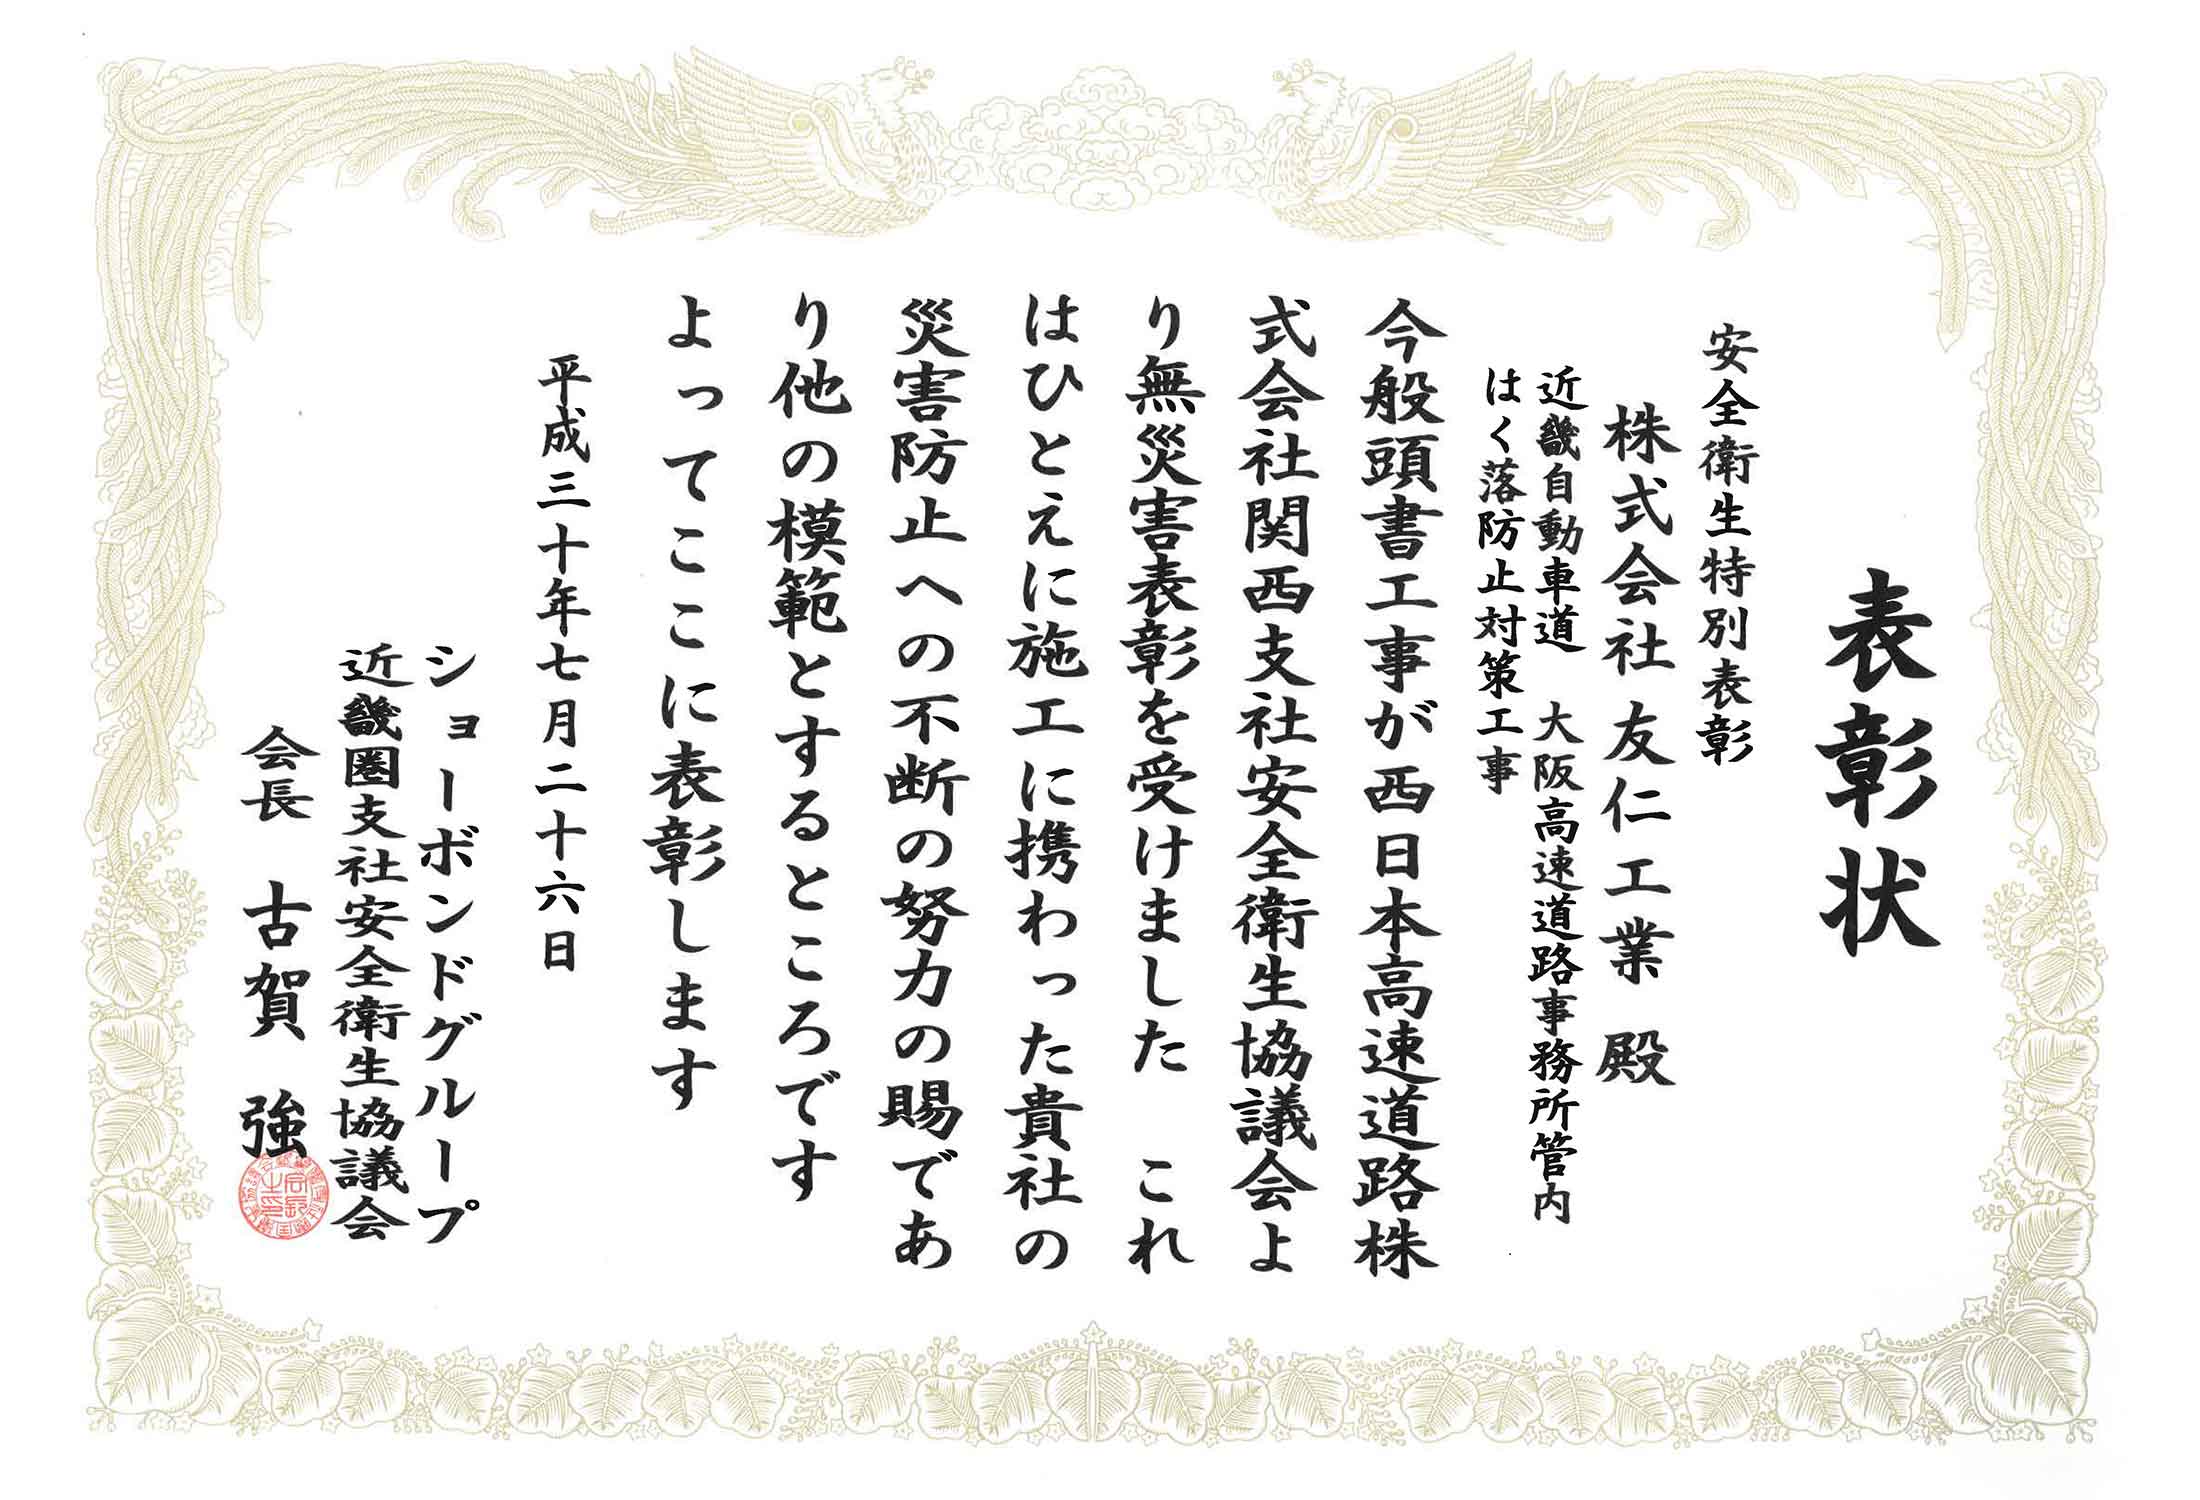 表彰状
安全衛生特別表彰
株式会社 友仁工業 殿
近畿自動車道 大阪高速道路事務所管内
はく落防止対策工事
今般頭書工事が西日本高速道路株
式会社関西支社安全衛生協議会よ
り無災害表彰を受けました これ
はひとえに施工に携わった貴社の
災害防止への不断の努力の賜であ
り他の模範とするところです
よってここに表彰します
平成三十年七月二十六日
ショーボンドグループ
近畿圏支社安全衛生協議会
会長 古賀 強